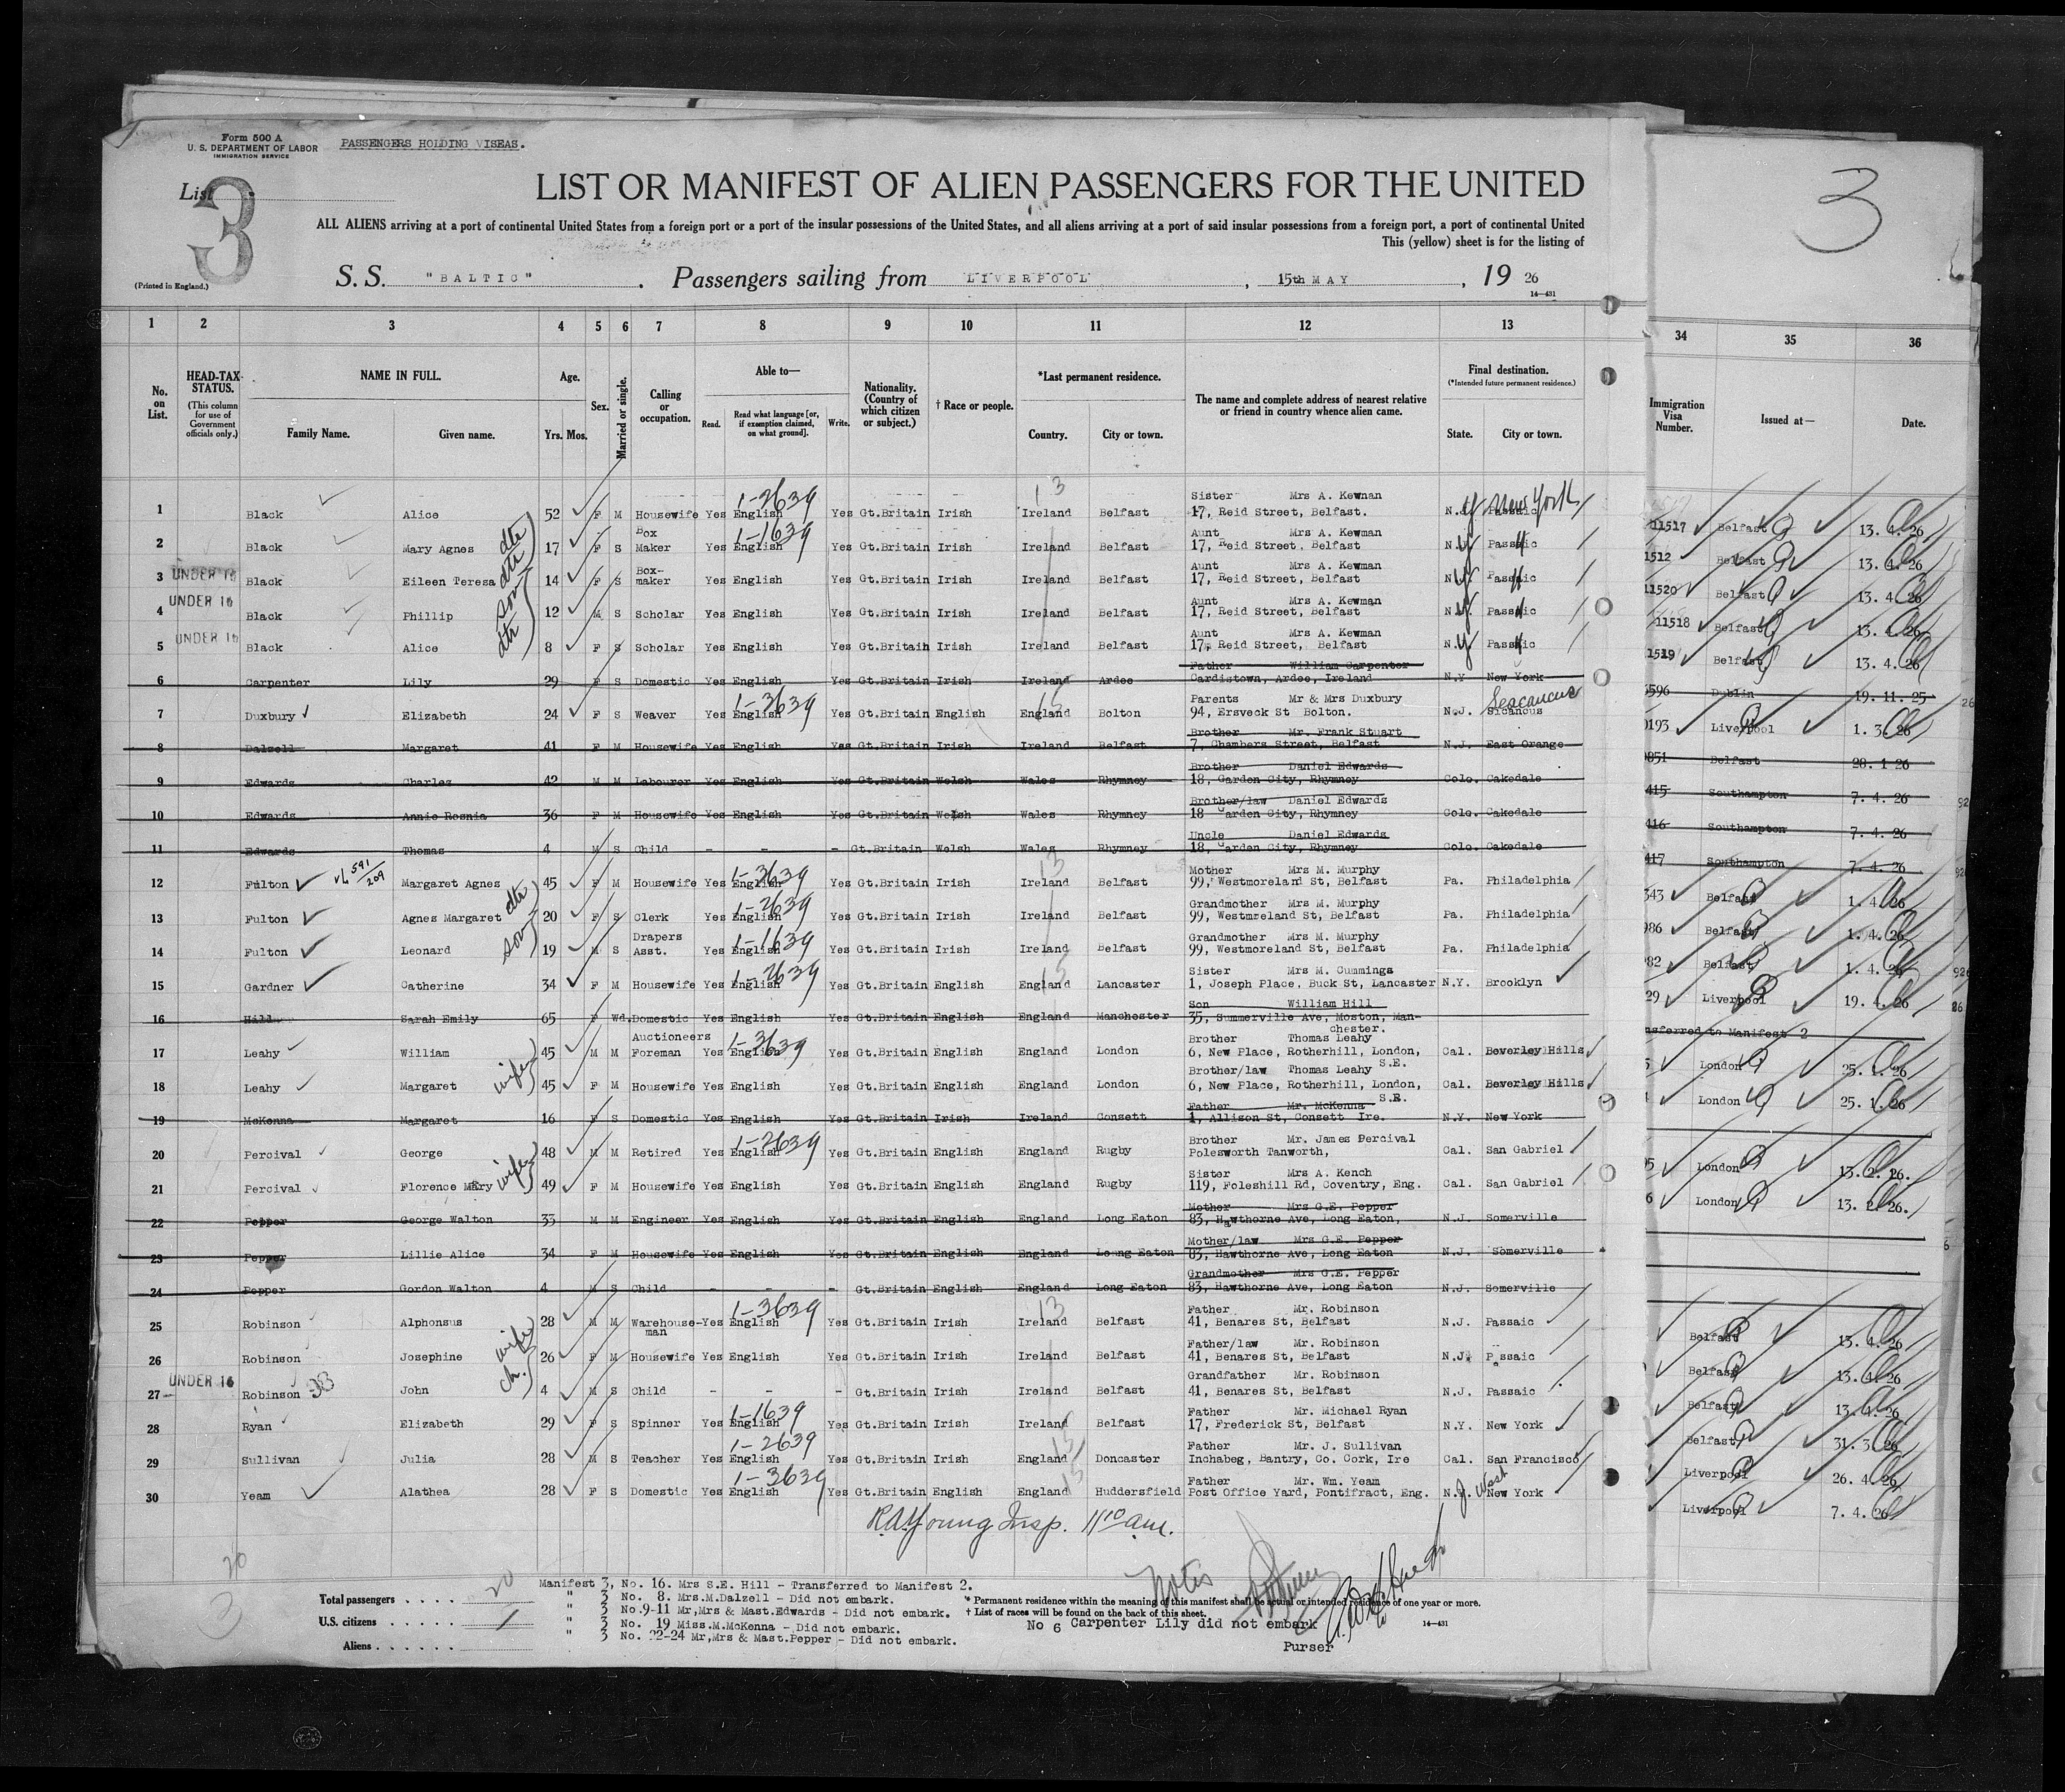 Form 500 A
U. S. DEPARTMENT OF LABOR
IMMIGRATION SERVICE
PASSENGERS HOLDING VISEAS.
List 3
LIST OR MANIFEST OF ALIEN PASSENGERS FOR THE UNITED
ALL ALIENS arriving at a port of continental United States from a foreign port or a port of the insular possessions of the United States, and all aliens arriving at a port of said insular possessions from a foreign port, a port of continental United
This (yellow) sheet is for the listing of
(Printed in England.)
S. S. "BALTIC". Passengers sailing from LIVERPOOL, 15th MAY, 19 26
14—431
3
1 2 3 4 5 6 7 8 9 10 11 12 13 34 35 36
No. on List.
HEAD-TAX STATUS.
(This column for use of Government officials only.)
NAME IN FULL.
Family Name. Given name.
Age.
Yrs. Mos.
Sex.
Married or single.
Calling or occupation.
Able to—
Read. Read what language [or, if exemption claimed, on what ground]. Write.
Nationality. (Country of which citizen or subject.)
† Race or people.
*Last permanent residence.
Country. City or town.
The name and complete address of nearest relative or friend in country whence alien came.
Final destination.
(*Intended future permanent residence.)
State. City or town.
Immigration Visa Number.
Issued at—
Date.
1 Black Alice 52 F M Housewife Yes English 1-2639 Yes Gt.Britain Irish Ireland Belfast Sister Mrs A. Kewnan 17, Reid Street, Belfast. N.Y. Passaic New York 11517 Belfast 13. 4. 26
2 Black Mary Agnes dtr 17 F S Box Maker Yes English 1-1639 Yes Gt.Britain Irish Ireland Belfast Aunt Mrs A. Kewman 17, Reid Street, Belfast N.Y. Passaic 1512 Belfast 13. 4. 26
3 UNDER 16 Black Eileen Teresa dtr 14 F S Box-maker Yes English Yes Gt.Britain Irish Ireland Belfast Aunt Mrs A. Kewman 17, Reid Street, Belfast N.Y. Passaic 11520 Belfast 13. 4. 26
4 UNDER 16 Black Phillip son 12 M S Scholar Yes English Yes Gt.Britain Irish Ireland Belfast Aunt Mrs A. Kewman 17, Reid Street, Belfast N.Y. Passaic 11518 Belfast 13. 4. 26
5 UNDER 16 Black Alice dtr 8 F S Scholar Yes English Yes Gt.Britain Irish Ireland Belfast Aunt Mrs A. Kewman 17, Reid Street, Belfast N.Y. Passaic 1519 Belfast 13. 4. 26
6 Carpenter Lily 29 F S Domestic Yes English Yes Gt.Britain Irish Ireland Ardee Father William Carpenter Cardistown, Ardee, Ireland N.Y New York 5596 Dublin 19. 11. 25
7 Duxbury Elizabeth 24 F S Weaver Yes English 1-3639 Yes Gt.Britain English England Bolton Parents Mr & Mrs Duxbury 94, Ersveck St Bolton. N.J. Sicancus Seacaucus 0193 Liverpool 1. 3. 26
8 Dalzell Margaret 41 F M Housewife Yes English Yes Gt.Britain Irish Ireland Belfast Brother Mr. Frank Stuart 7, Chambers Street, Belfast N.J. East Orange 0851 Belfast 28. 1 26
9 Edwards Charles 42 M M Labourer Yes English Yes Gt.Britain Welsh Wales Rhymney Brother Daniel Edwards 18, Garden City, Rhymney Colo. Cakedale 415 Southampton 7. 4. 26
10 Edwards Annie Rosnia 36 F M Housewife Yes English Yes Gt.Britain Welsh Wales Rhymney Brother/law Daniel Edwards 18 Garden City, Rhymney Colo. Cakedale 416 Southampton 7. 4. 26
11 Edwards Thomas 4 M S Child - - - Gt.Britain Welsh Wales Rhymney Uncle Daniel Edwards 18, Garden City, Rhymney Colo. Cakedale 417 Southampton 7. 4. 26
12 Fulton 591/209 Margaret Agnes 45 F M Housewife Yes English 1-3639 Yes Gt.Britain Irish Ireland Belfast Mother Mrs M. Murphy 99, Westmoreland St, Belfast Pa. Philadelphia 343 Belfast 1. 4. 26
13 Fulton Agnes Margaret dtr 20 F S Clerk Yes English 1-2639 Yes Gt.Britain Irish Ireland Belfast Grandmother Mrs M. Murphy 99, Westmreland St, Belfast Pa. Philadelphia 986 Belfast 1. 4. 26
14 Fulton Leonard son 19 M S Drapers Asst. Yes English 1-1639 Yes Gt.Britain Irish Ireland Belfast Grandmother Mrs M. Murphy 99, Westmoreland St, Belfast Pa. Philadelphia 982 Belfast 1. 4. 26
15 Gardner Catherine 34 F M Housewife Yes English 1-2639 Yes Gt.Britain English England Lancaster Sister Mrs M. Cummings 1, Joseph Place, Buck St, Lancaster N.Y. Brooklyn 29 Liverpool 19. 4. 26
16 Hill Sarah Emily 65 F Wd. Domestic Yes English Yes Gt.Britain English England Manchester Son William Hill 35, Summerville Ave, Moston, Manchester. nsferred to Manifest 2
17 Leahy William 45 M M Auctioneers Foreman Yes English 1-3639 Yes Gt.Britain English England London Brother Thomas Leahy 6, New Place, Rotherhill, London, S.E. Cal. Beverley Hills London 25. 1. 26
18 Leahy Margaret wife 45 F M Housewife Yes English Yes Gt.Britain English England London Brother/law Thomas Leahy 6, New Place, Rotherhill, London, S.E. Cal. Beverley Hills London 25. 1. 26
19 McKenna Margaret 16 F S Domestic Yes English Yes Gt.Britain Irish Ireland Consett Father Mr. McKenna 1, Allison St, Consett Ire. N.Y. New York
20 Percival George 48 M M Retired Yes English 1-2639 Yes Gt.Britain English England Rugby Brother Mr. James Percival Polesworth Tanworth, Cal. San Gabriel London 13. 2. 26.
21 Percival Florence Mary wife 49 F M Housewife Yes English Yes Gt.Britain English England Rugby Sister Mrs A. Kench 119, Foleshill Rd, Coventry, Eng. Cal. San Gabriel London 13. 2. 26.
22 Pepper George Walton 35 M M Engineer Yes English Yes Gt.Britain English England Long Eaton Mother Mrs G.E. Pepper 83, Hawthorne Ave, Long Eaton, N.J. Somerville
23 Pepper Lillie Alice 34 F M Housewife Yes English Yes Gt.Britain English England Loung Eaton Mother/law Mrs G.E. Pepper 83, Hawthorne Ave, Long Eaton N.J. Somerville
24 Pepper Gordon Walton 4 M S Child - - - Gt.Britain English England Long Eaton Grandmother Mrs G.E. Pepper 83, Hawthorne Ave, Long Eaton N.J. Somerville
25 Robinson Alphonsus 28 M M Warehouse-man Yes English 1-3639 Yes Gt.Britain Irish Ireland Belfast Father Mr. Robinson 41, Benares St, Belfast N.J. Passaic Belfast 13. 4. 26
26 Robinson Josephine wife 26 F M Housewife Yes English Yes Gt.Britain Irish Ireland Belfast Father/law Mr. Robinson 41, Benares St, Belfast N.J. Passaic Belfast 13. 4. 26
27 UNDER 16 Robinson John ch. 4 M S Child - - - Gt.Britain Irish Ireland Belfast Grandfather Mr. Robinson 41, Benares St, Belfast N.J. Passaic Belfast 13. 4. 26
28 Ryan Elizabeth 29 F S Spinner Yes English 1-1639 Yes Gt.Britain Irish Ireland Belfast Father Mr. Michael Ryan 17, Frederick St, Belfast N.Y. New York Belfast 31. 3. 26
29 Sullivan Julia 28 M S Teacher Yes English 1-2639 Yes Gt.Britain Irish England Doncaster Father Mr. J. Sullivan Inchabeg, Bantry, Co. Cork, Ire Cal. San Francisco Liverpool 26. 4. 26
30 Yeam Alathea 28 F S Domestic Yes English 1-3639 Yes Gt.Britain English England Huddersfield Father Mr. Wm. Yeam Post Office Yard, Pontifract, Eng. N.J. West New York Liverpool 7. 4. 26
R.A. Young Insp. 11 10 am.
20
3
Total passengers 20
U.S. citizens 1
Aliens
Manifest 3, No. 16. Mrs S.E. Hill - Transferred to Manifest 2.
" 3 No. 8. Mrs.M.Dalzell - Did not embark.
" 3 No.9-11 Mr,Mrs & Mast.Edwards - Did not embark.
" 3 No. 19 Miss.M.McKenna - Did not embark.
" 3 No. 22-24 Mr,Mrs & Mast.Pepper - Did not embark.
* Permanent residence within the meaning of this manifest shall be actual or intended residence of one year or more.
† List of races will be found on the back of this sheet.
No 6 Carpenter Lily did not embark
14—431
Purser